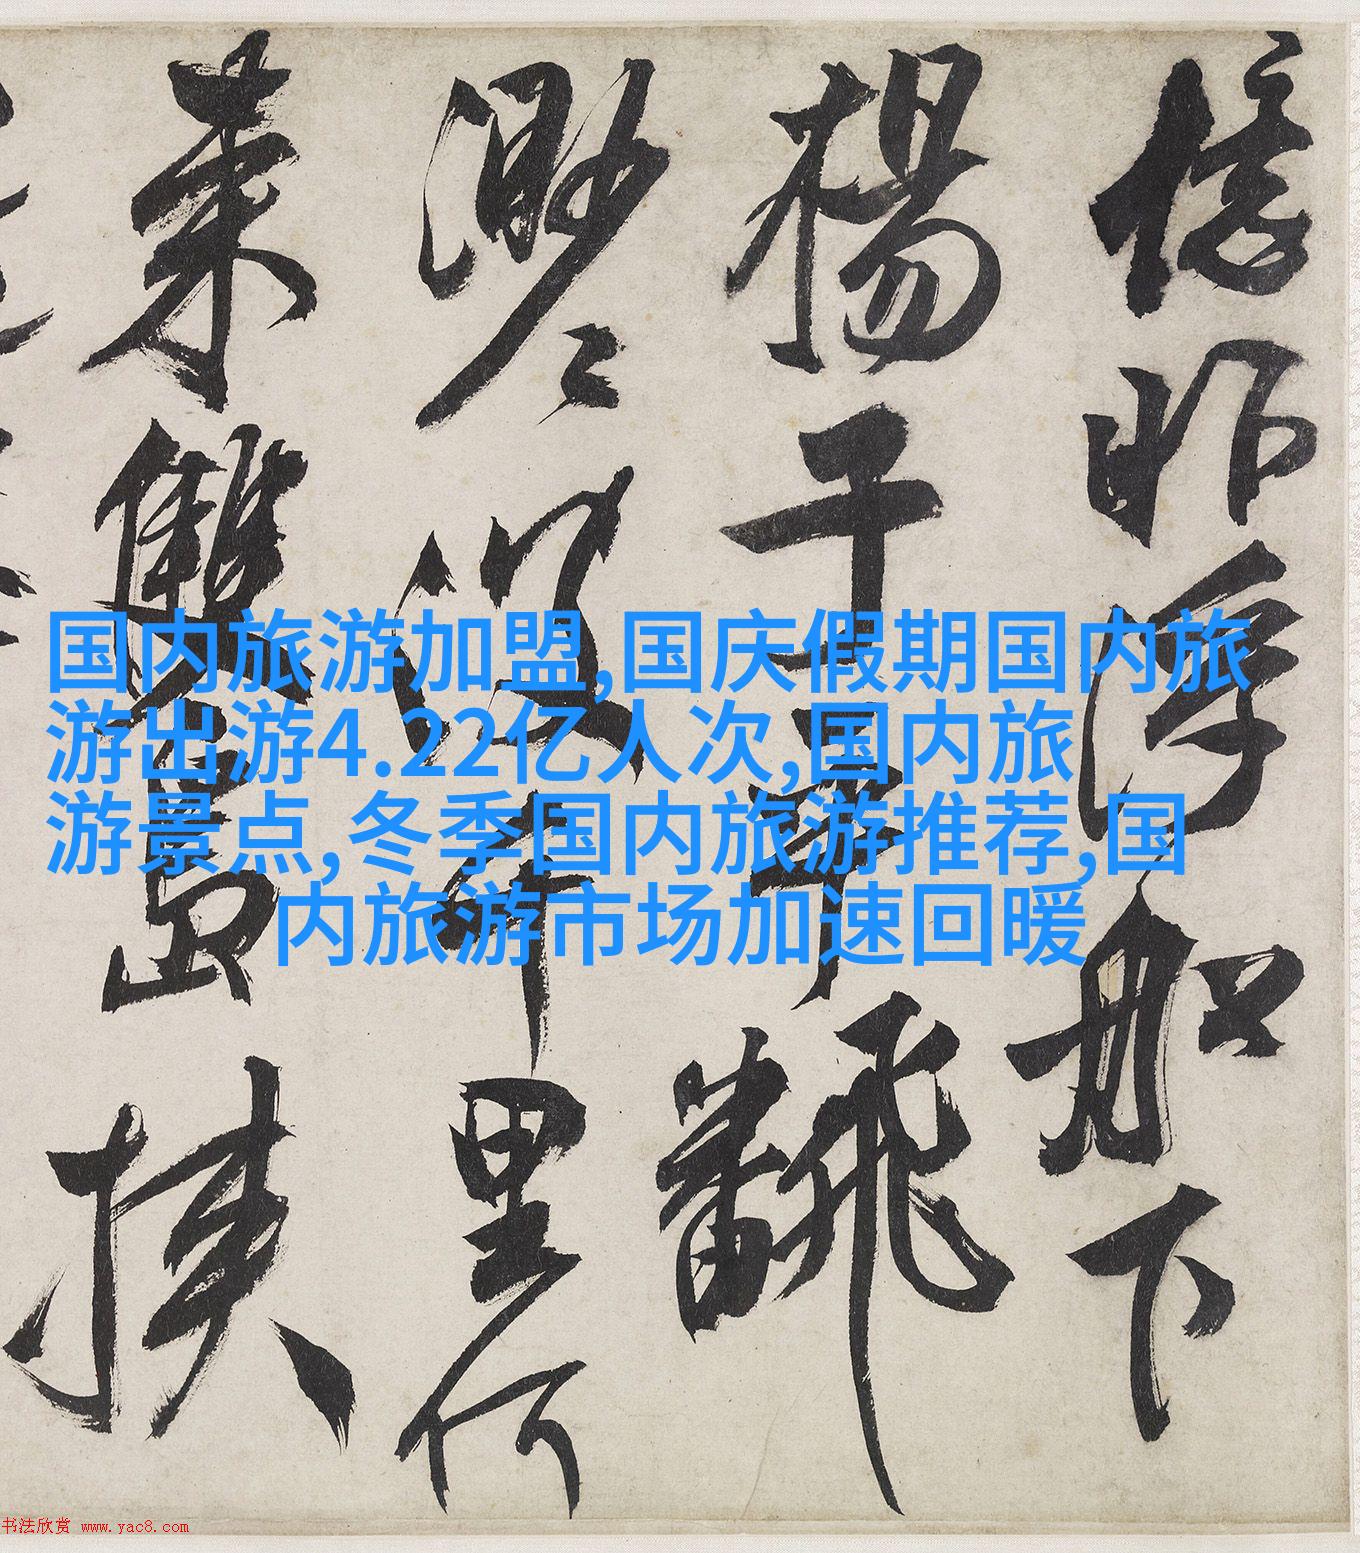 憶昨浮船下
楊子平飜
渺渺波千里何
來雙島挾
国内旅游加盟,国庆假期国内旅
游出游4.22亿人次,国内旅
游景点,冬季国内旅游推荐,国
内旅游市场加速回暖
书法欣赏 www.yac8.com